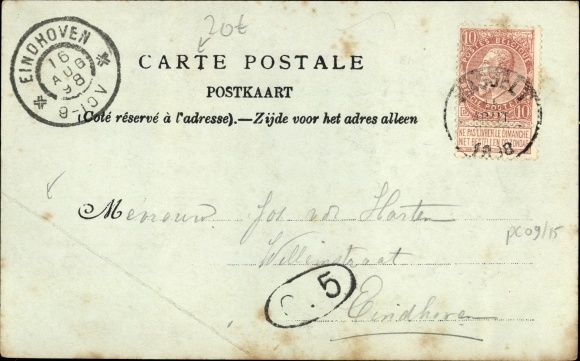 20€
EINDHOVEN
16 AUG 98
8-12V
CARTE POSTALE
POSTKAART
(Coté réservé à l'adresse).—Zijde voor het adres alleen
10 POSTES BELGIQUE 10
NE PAS LIVRER LE DIMANCHE
NIET BESTELLEN OP ZONDAG
1898
Mevrouw Jos vdr Harten
Willemstraat
Eindhoven
5
pc09/15